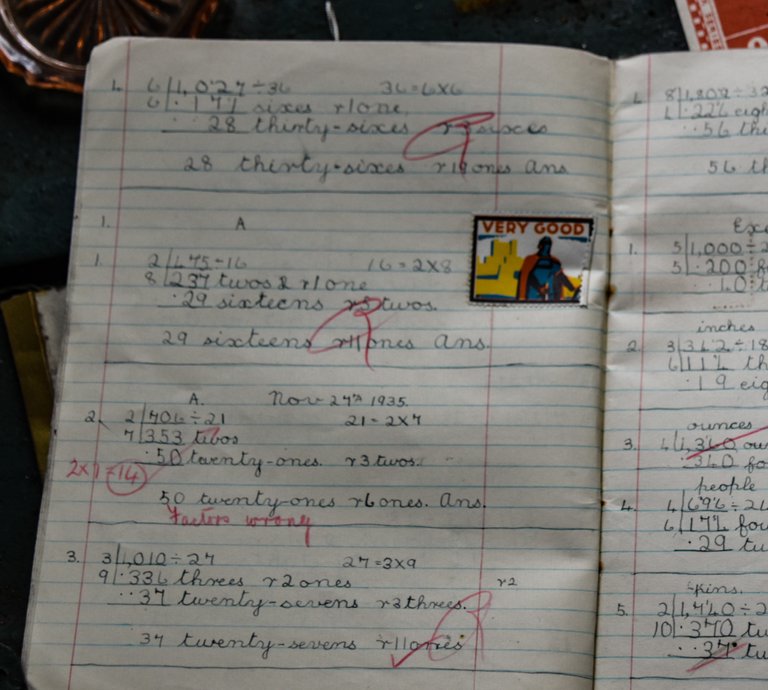 1. 6|1,027÷36 36=6x6
6|·171 sixes r1one.
··28 thirty-sixes r3sixes
28 thirty-sixes r19ones Ans
1. A
1. 2|475÷16 16=2x8
8|237 twos & r1one
·29 sixteens r5twos.
29 sixteens r11ones Ans.
VERY GOOD
A. Nov 27th 1935.
2. 2|706÷21 21=2x7
7|353 twos
·50 twenty-ones. r3twos.
2x7=14
50 twenty-ones r6ones. Ans.
Factors wrong
3. 3|1,010÷27 27=3x9
9|·336 threes r2ones r2
··37 twenty-sevens r3threes.
37 twenty-sevens r11ones
8|1,802÷32
·56
56
1. 5|1,000÷2
5|·200
inches
2. 3|342÷18
6|114
·19
ounces
3. 4|1,360
·340
people
4. 4|696÷24
6|174
·29
5. 2|1,740÷2
10|·370
··37